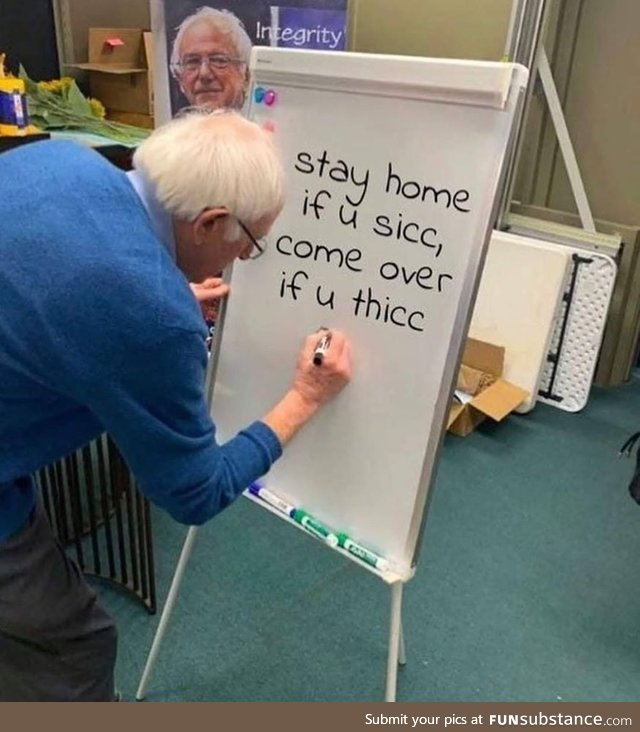 Integrity
stay home
if u sicc,
come over
if u thicc
Submit your pics at FUNsubstance.com